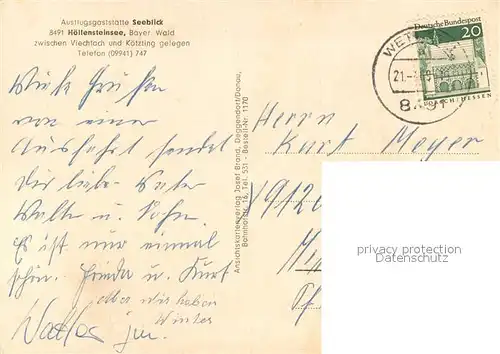 Ausflugsgaststätte Seeblick
8491 Höllensteinsee, Bayer. Wald
zwischen Viechtach und Kötzting gelegen
Telefon (09941) 747
Deutsche Bundespost
20
LORSCH/HESSEN
WET
21.
849
von einer
Ausfahrt sendet
Dir liebe
Walter u. Sohn.
Es ist nur einmal
schön. Frieda u. Kurt
aber wir haben
Winter
jun.
Ansichtskartenverlag Josef Brand, Deggendorf/Donau,
Bahnhofstr. 16, Tel. 531 - Bestell-Nr. 1170
Herrn
Kurt Meyer
privacy protection
watermark